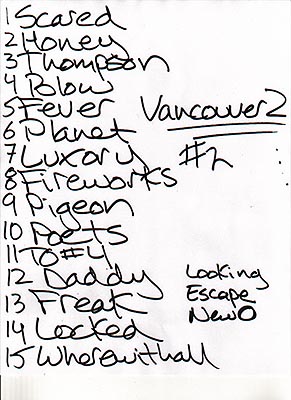 1 Scared
2 Honey
3 Thompson
4 Polow
5 Fever
6 Planet
7 Luxory
8 Fireworks
9 Pigeon
10 Poets
11 To#4
12 Daddy
13 Freak
14 Locked
15 Wherewithall
Vancouver 2
#2
Looking
Escape
New O